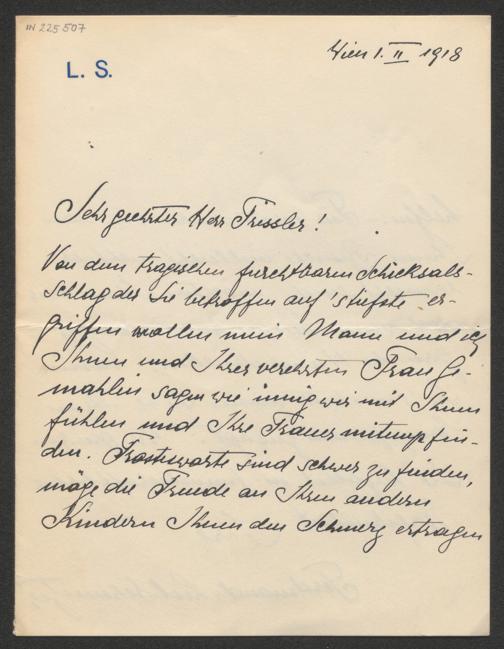 IN 225 507
Wien 1. II 1918
L. S.
Sehr geehrter Herr Tressler!
Von dem tragischen furchtbaren Schicksals-
schlag der Sie betroffen auf's tiefste er-
griffen wollen mein Mann und ich
Ihnen und Ihrer verehrten Frau Ge-
mahlin sagen wie innig wir mit Ihnen
fühlen und Ihre Trauer mitempfin-
den. Trostworte sind schwer zu finden,
möge die Freude an Ihren andern
Kindern Ihnen den Schmerz ertragen